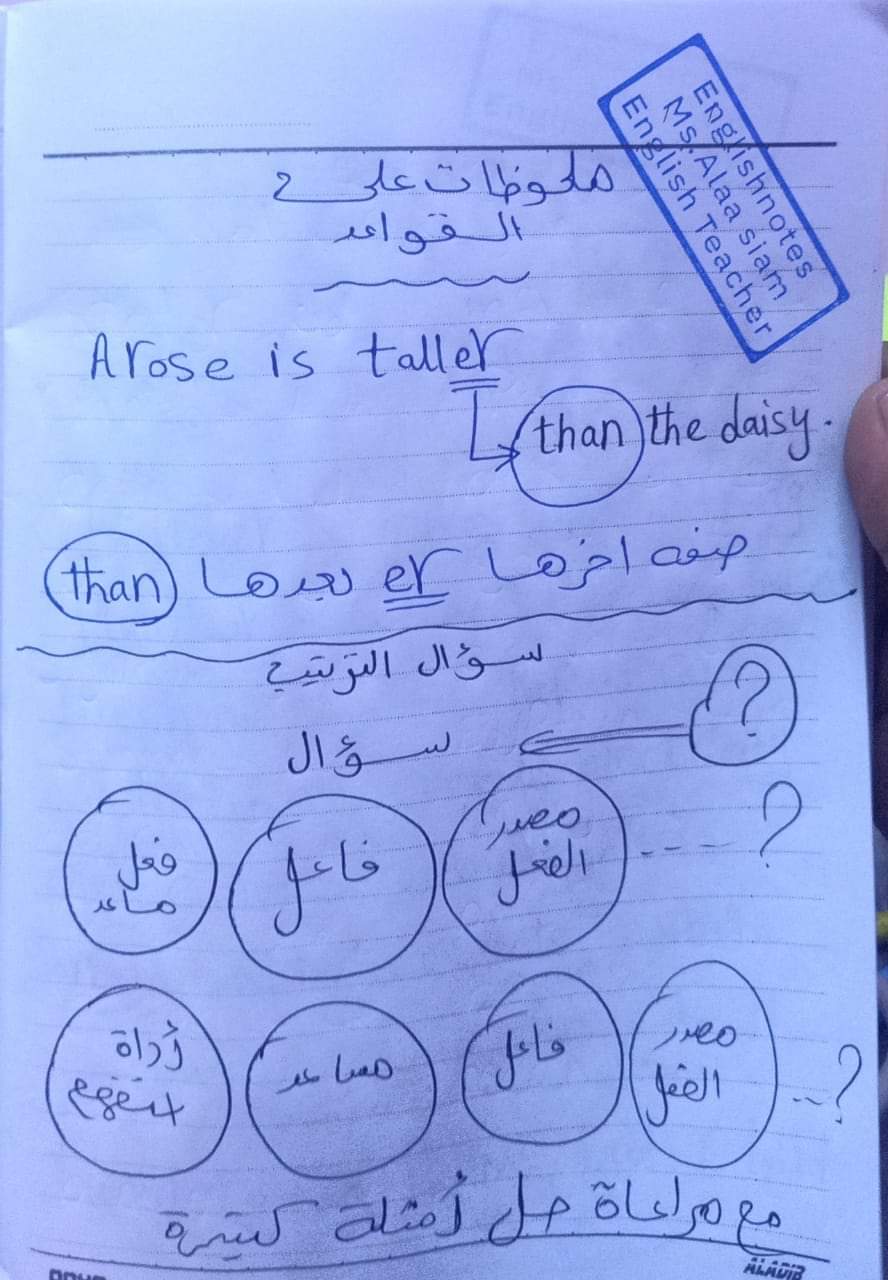 Englishnotes
Ms. Alaa siam
English Teacher
ملحوظات على
القواعد
A rose is taller
than the daisy.
صفه اخرها er بعدها than
سؤال الترتيب
? سؤال
فعل مساعد فاعل مصدر الفعل ---- ?
أداة استفهام مساعد فاعل مصدر الفعل --?
مع مراعاة حل أمثلة كتيرة
ALADIB